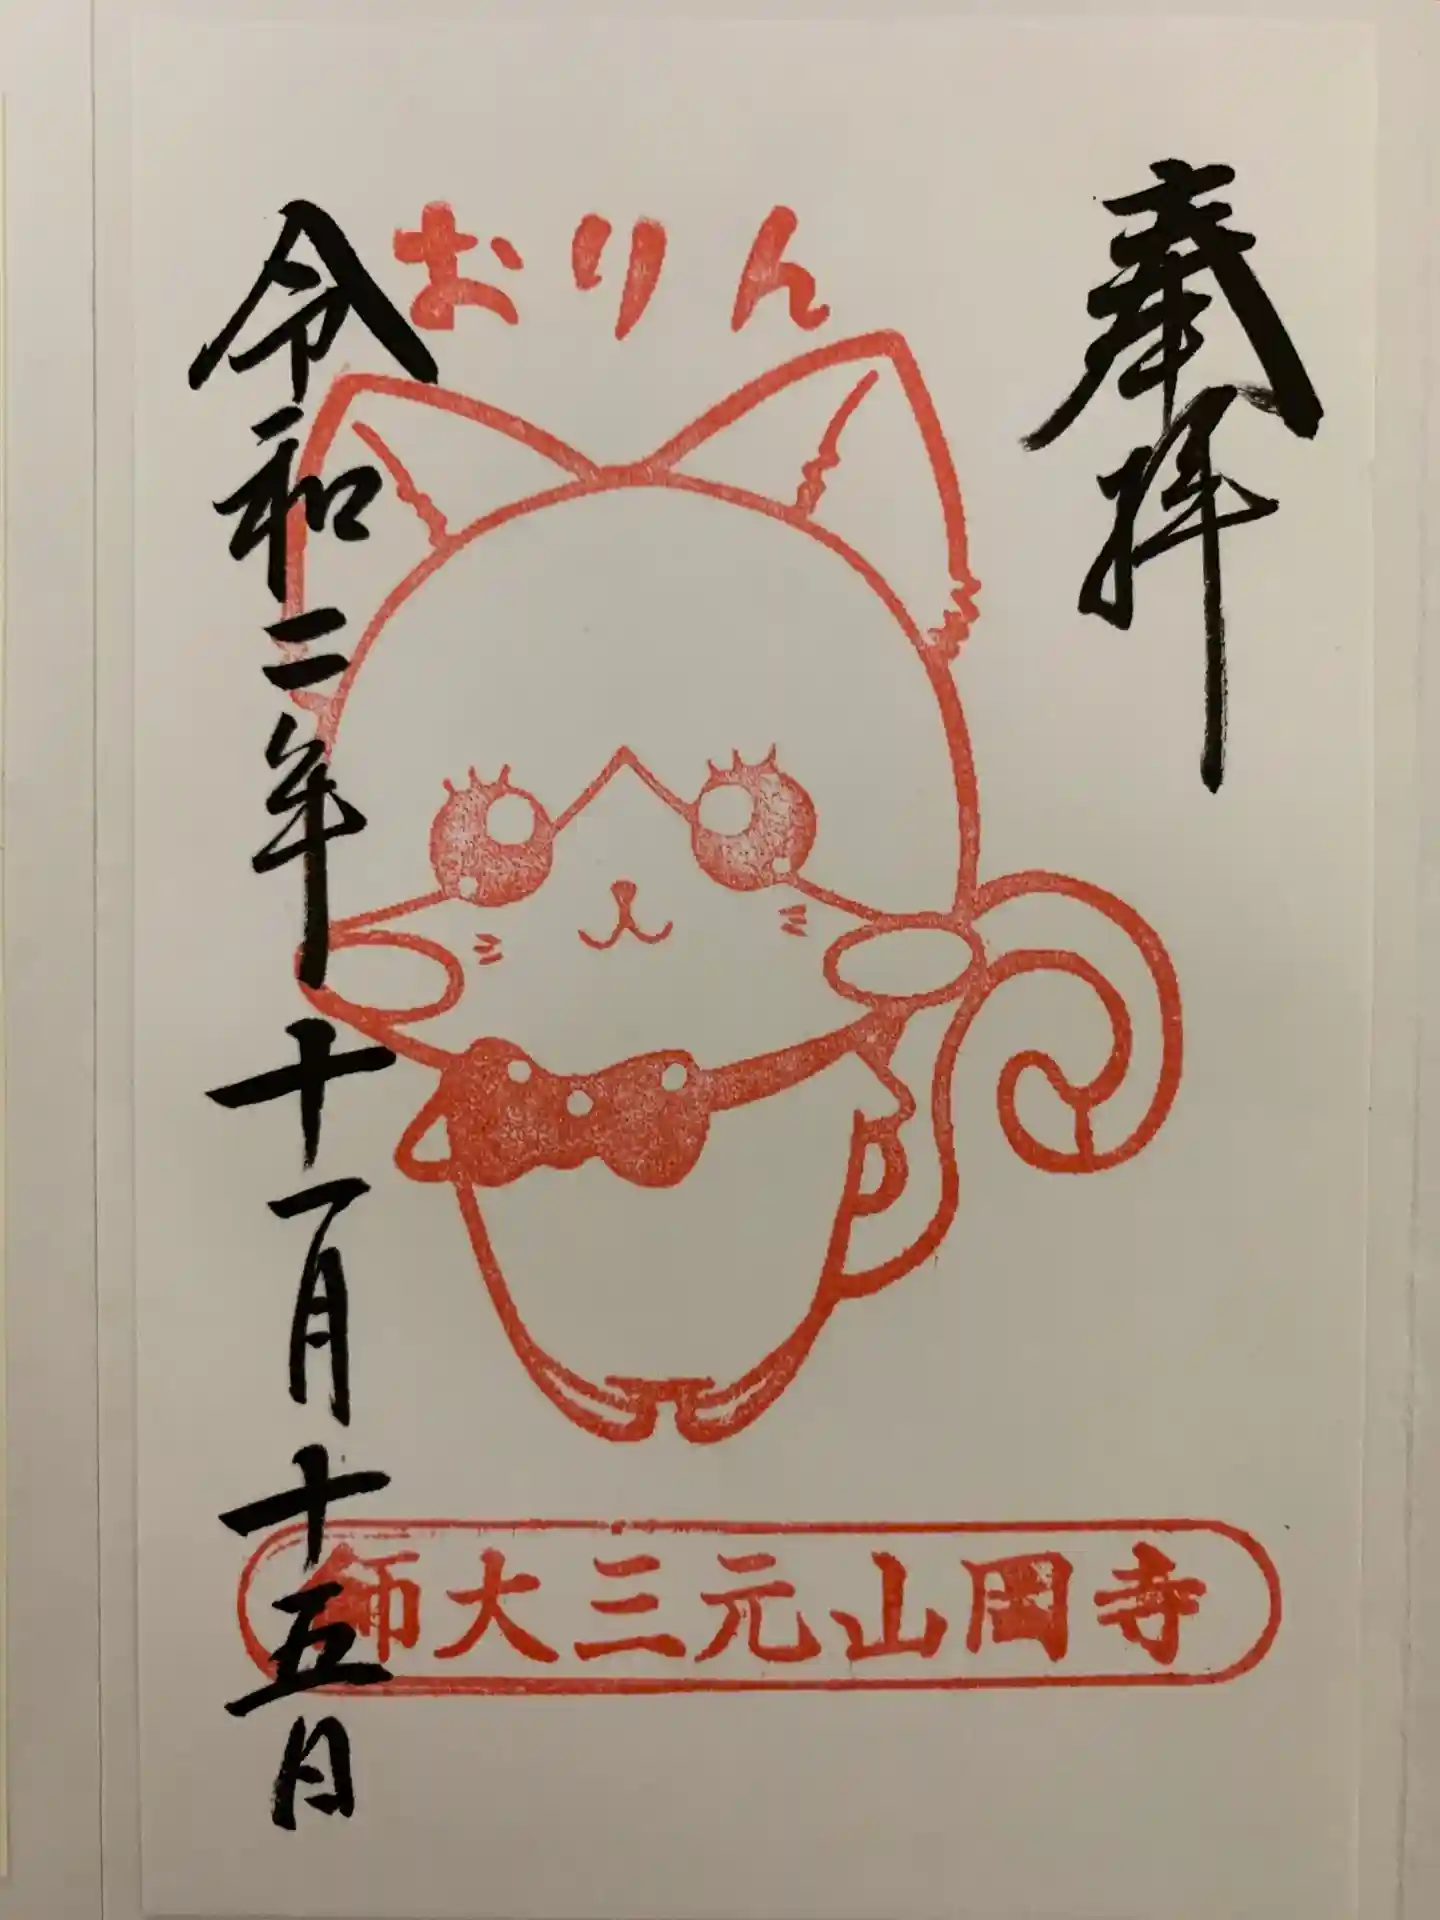 奉拝
おりん
令和二年十一月十五日
師大三元山岡寺